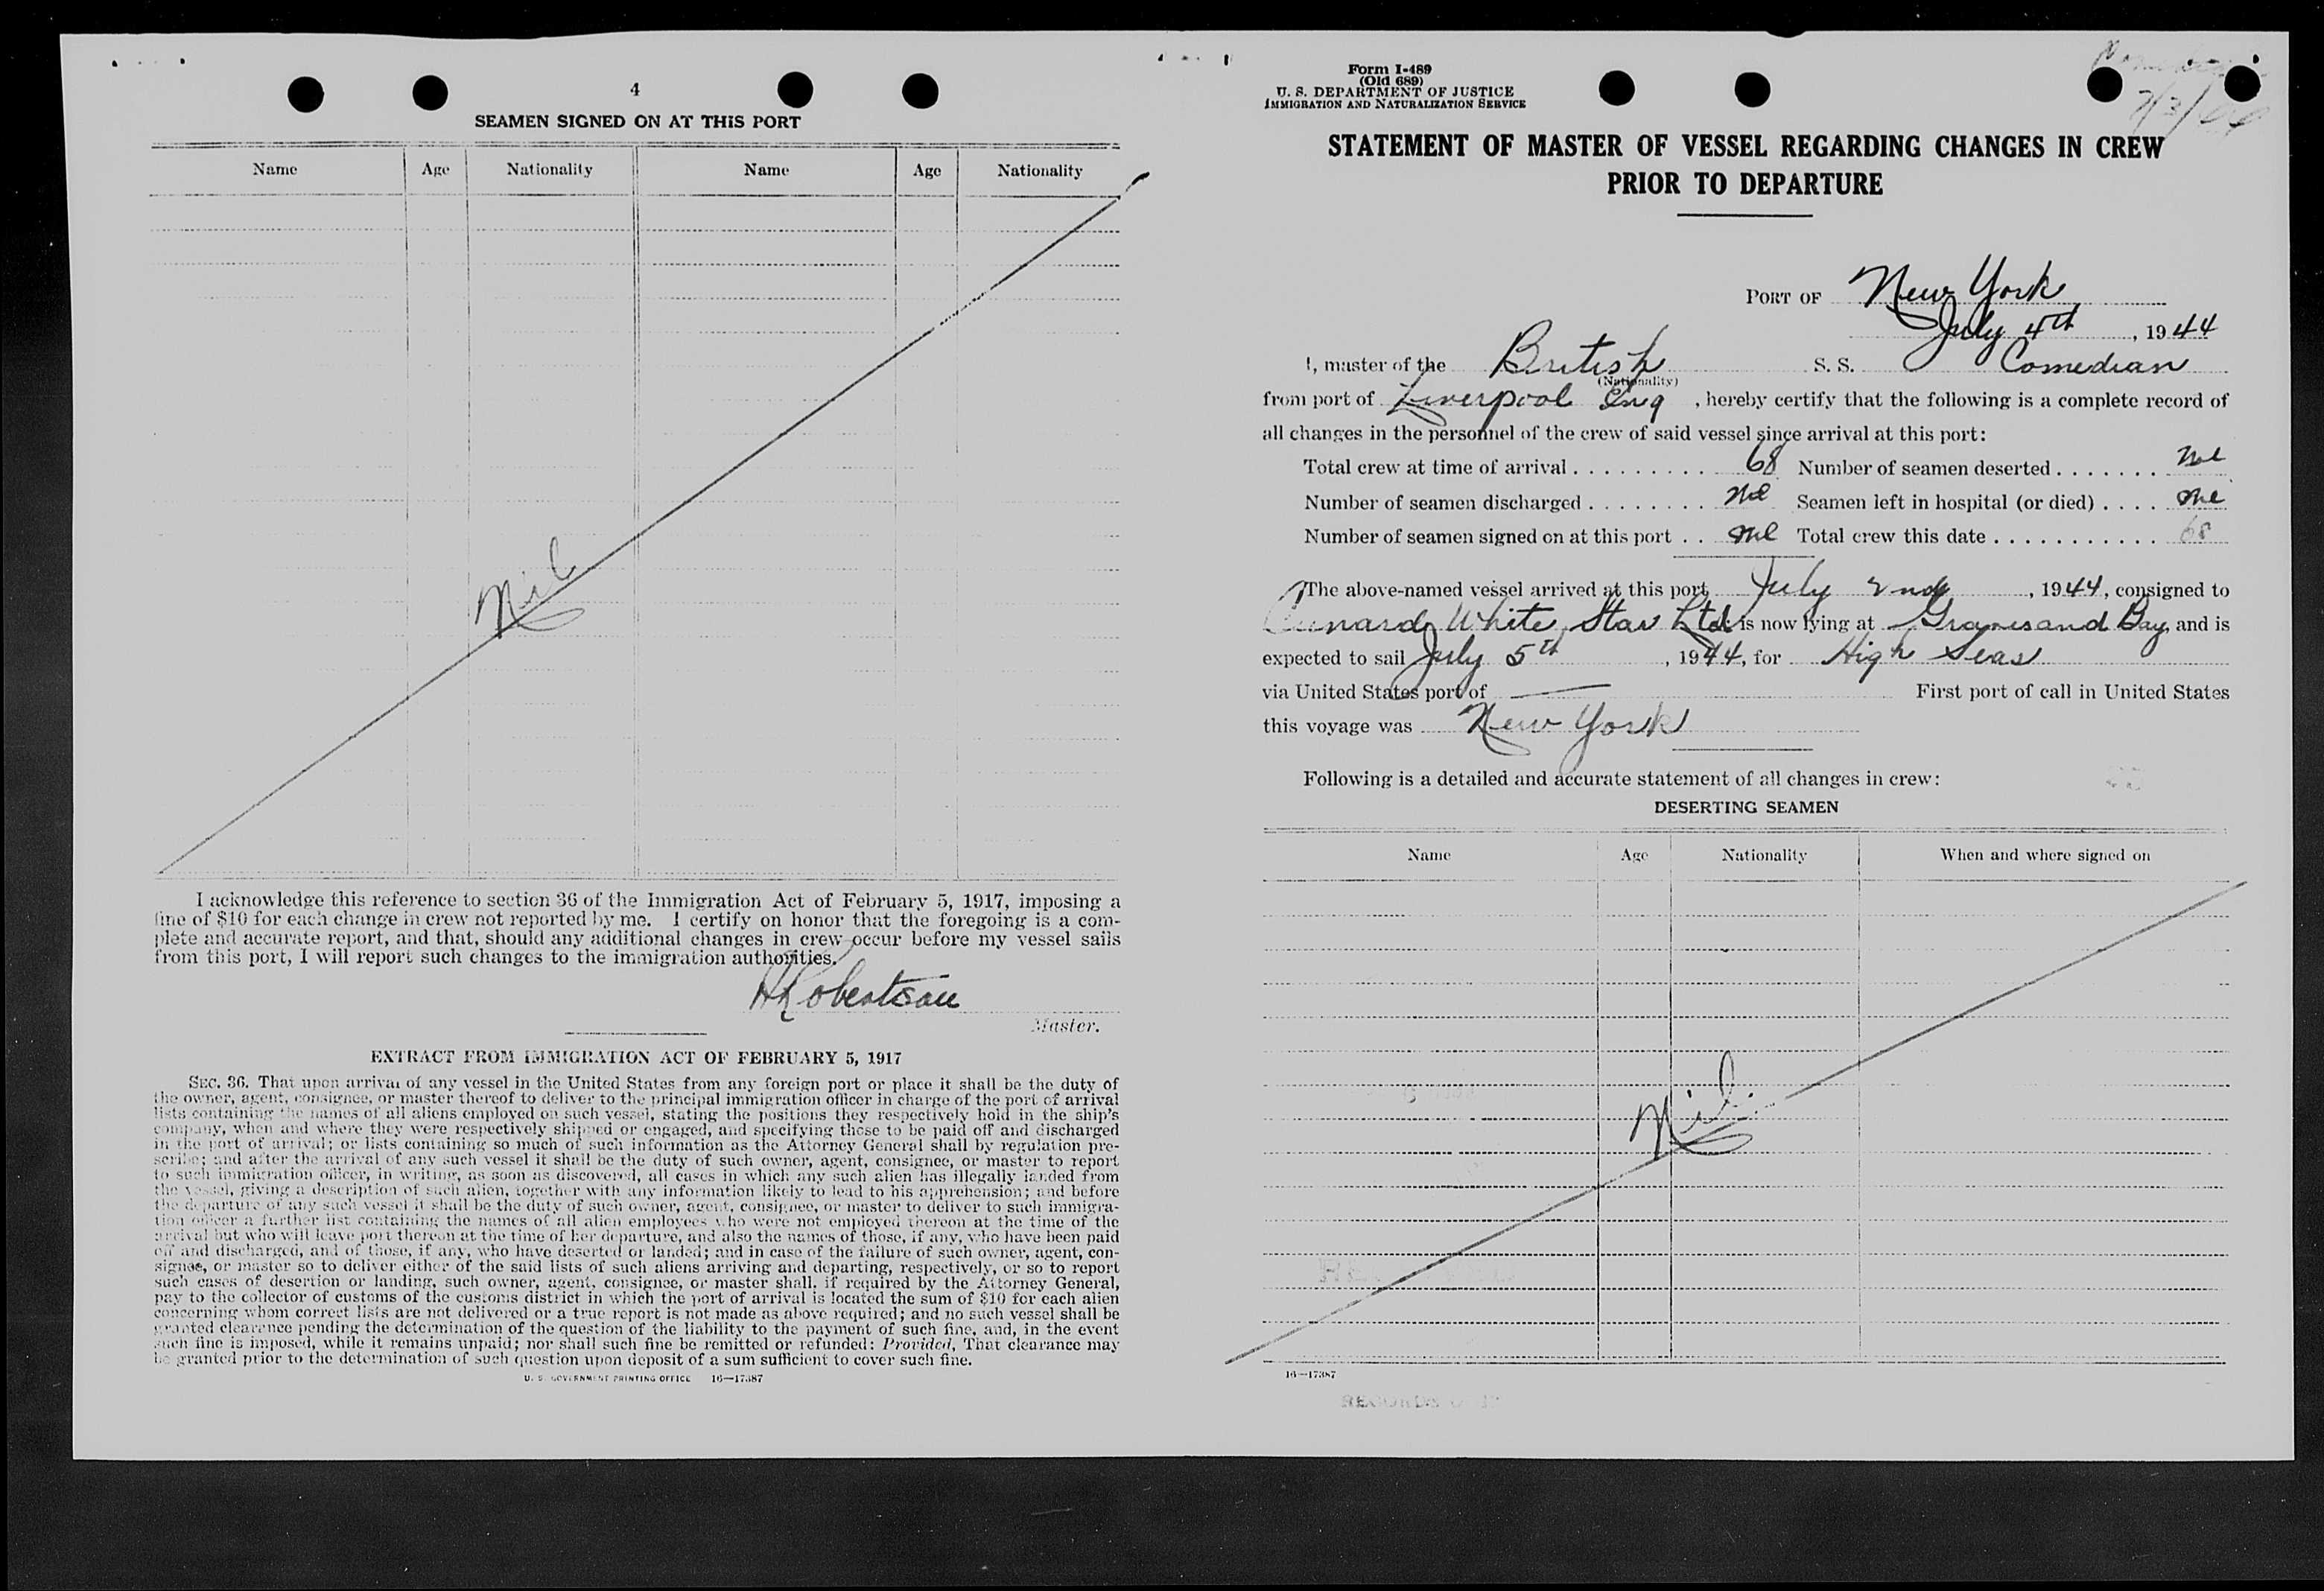 4
SEAMEN SIGNED ON AT THIS PORT
Name Age Nationality Name Age Nationality
Nil
I acknowledge this reference to section 36 of the Immigration Act of February 5, 1917, imposing a
fine of $10 for each change in crew not reported by me. I certify on honor that the foregoing is a com-
plete and accurate report, and that, should any additional changes in crew occur before my vessel sails
from this port, I will report such changes to the immigration authorities.
Robertson
Master.
EXTRACT FROM IMMIGRATION ACT OF FEBRUARY 5, 1917
SEC. 36. That upon arrival of any vessel in the United States from any foreign port or place it shall be the duty of
the owner, agent, consignee, or master thereof to deliver to the principal immigration officer in charge of the port of arrival
lists containing the names of all aliens employed on such vessel, stating the positions they respectively hold in the ship's
company, when and where they were respectively shipped or engaged, and specifying those to be paid off and discharged
in the port of arrival; or lists containing so much of such information as the Attorney General shall by regulation pre-
scribe; and after the arrival of any such vessel it shall be the duty of such owner, agent, consignee, or master to report
to such immigration officer, in writing, as soon as discovered, all cases in which any such alien has illegally landed from
the vessel, giving a description of such alien, together with any information likely to lead to his apprehension; and before
the departure of any such vessel it shall be the duty of such owner, agent, consignee, or master to deliver to such immigra-
tion officer a further list containing the names of all alien employees who were not employed thereon at the time of the
arrival but who will leave port thereon at the time of her departure, and also the names of those, if any, who have been paid
off and discharged, and of those, if any, who have deserted or landed; and in case of the failure of such owner, agent, con-
signee, or master so to deliver either of the said lists of such aliens arriving and departing, respectively, or so to report
such cases of desertion or landing, such owner, agent, consignee, or master shall, if required by the Attorney General,
pay to the collector of customs of the customs district in which the port of arrival is located the sum of $10 for each alien
concerning whom correct lists are not delivered or a true report is not made as above required; and no such vessel shall be
granted clearance pending the determination of the question of the liability to the payment of such fine, and, in the event
such fine is imposed, while it remains unpaid; nor shall such fine be remitted or refunded: Provided, That clearance may
be granted prior to the determination of such question upon deposit of a sum sufficient to cover such fine.
U. S. GOVERNMENT PRINTING OFFICE 16—17387
Form I-489
(Old 689)
U. S. DEPARTMENT OF JUSTICE
IMMIGRATION AND NATURALIZATION SERVICE
7/3/44
STATEMENT OF MASTER OF VESSEL REGARDING CHANGES IN CREW
PRIOR TO DEPARTURE
PORT OF New York
July 4th, 1944
I, master of the British S. S. Comedian
(Nationality)
from port of Liverpool Eng, hereby certify that the following is a complete record of
all changes in the personnel of the crew of said vessel since arrival at this port:
Total crew at time of arrival . . . . . . . . . . 68 Number of seamen deserted . . . . . . . Nil
Number of seamen discharged . . . . . . . . Nil Seamen left in hospital (or died) . . . . Nil
Number of seamen signed on at this port . . Nil Total crew this date . . . . . . . . . . . . 68
The above-named vessel arrived at this port July 2nd, 1944, consigned to
Cunard White Star Ltd is now lying at Gravesand Bay, and is
expected to sail July 5th, 1944, for High Seas
via United States port of — First port of call in United States
this voyage was New York
Following is a detailed and accurate statement of all changes in crew:
DESERTING SEAMEN
Name Age Nationality When and where signed on
Nil
16—17387